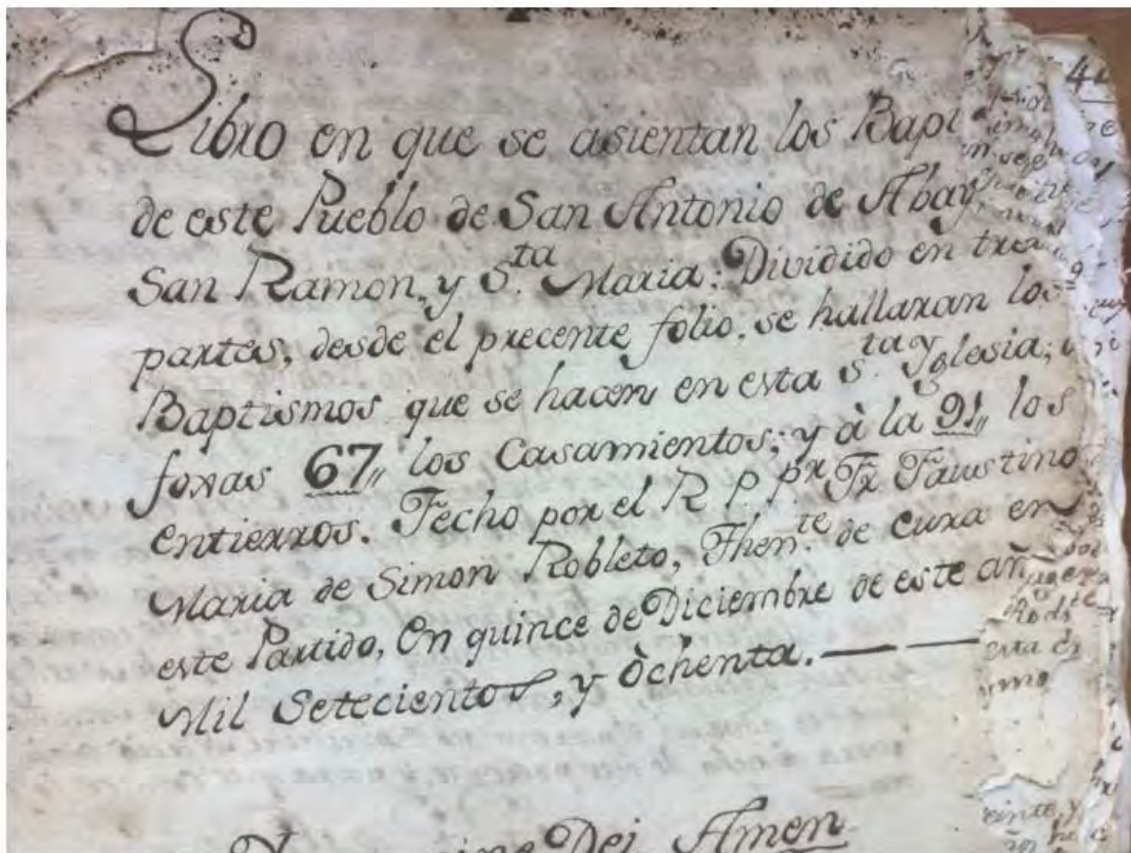 Libro en que se asientan los Bapt
de este Pueblo de San Antonio de Abay
San Ramon, y S.ta Maria: Dividido en tres
partes, desde el precente folio, se hallaran los
Baptismos que se hacen en esta S.ta Yglesia;
foxas 67,, los Casamientos; y à la 91,, los
entierros. Fecho por el R P. Pr. Fr. Faustino
Maria de Simon Robleto, Then.te de Cura en
este Partido, On quince de Diciembre de este añ
Mil Setecientos, y òchenta.
Dei Amen